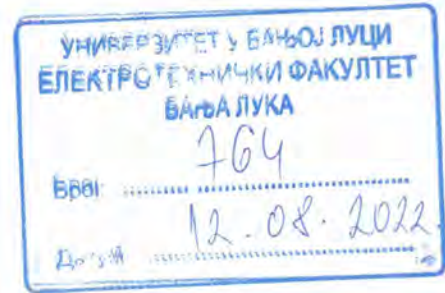 УНИВЕРЗИТЕТ У БАЊОЈ ЛУЦИ
ЕЛЕКТРОТЕХНИЧКИ ФАКУЛТЕТ
БАЊА ЛУКА
Број: 764
Датум 12.08.2022.